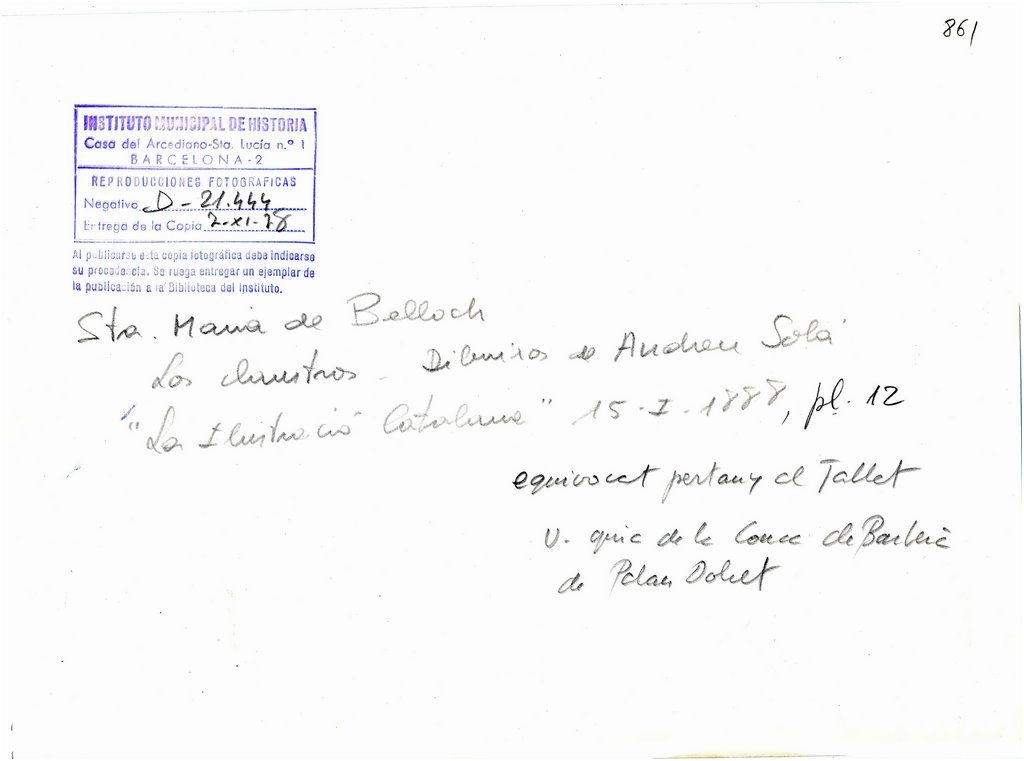 861
INSTITUTO MUNICIPAL DE HISTORIA
Casa del Arcediano-Sta. Lucía n.º 1
BARCELONA-2
REPRODUCCIONES FOTOGRAFICAS
Negativo D - 21.444
Entrega de la Copia 7-XI-78
Al publicarse esta copia fotográfica debe indicarse
su procedencia. Se ruega entregar un ejemplar de
la publicación a la Biblioteca del Instituto.
Sta. Maria de Belloch
Los claustros - Dibuixos de Andreu Solá
"La Ilustració Catalana" 15-I-1888, pl. 12
equivocat pertany al Tallat
V. guia de la Conca de Barberà
de Palau Dolcet